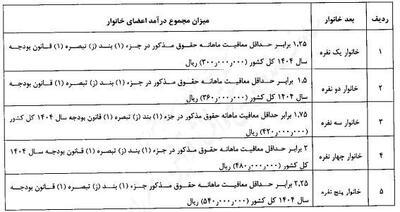 ردیف	بعد خانوار	میزان مجموع درآمد اعضای خانوار
۱	خانوار یک نفره	۱,۲۵ برابر حداقل معافیت ماهانه حقوق مذکور در جزء (۱) بند (ز) تبصره (۱) قانون بودجه
سال ۱۴۰۴ کل کشور (۳۰۰٫۰۰۰٫۰۰۰) ریال
۲	خانوار دو نفره	۱,۵ برابر حداقل معافیت ماهانه حقوق مذکور در جزء (۱) بند (ز) تبصره (۱) قانون بودجه
سال ۱۴۰۴ کل کشور (۳۶۰٫۰۰۰٫۰۰۰) ریال
۳	خانوار سه نفره	۱,۷۵ برابر حداقل معافیت ماهانه حقوق مذکور در جزء (۱) بند (ز) تبصره (۱) قانون بودجه سال ۱۴۰۴ کل کشور
(۴۲۰٫۰۰۰٫۰۰۰) ریال
۴	خانوار چهار نفره	۲ برابر حداقل معافیت ماهانه حقوق مذکور در جزء (۱) بند (ز) تبصره (۱) قانون بودجه سال ۱۴۰۴
کل کشور (۴۸۰٫۰۰۰٫۰۰۰) ریال
۵	خانوار پنج نفره	۲,۲۵ برابر حداقل معافیت ماهانه حقوق مذکور در جزء (۱) بند (ز) تبصره (۱) قانون بودجه
سال ۱۴۰۴ کل کشور (۵۴۰٫۰۰۰٫۰۰۰) ریال